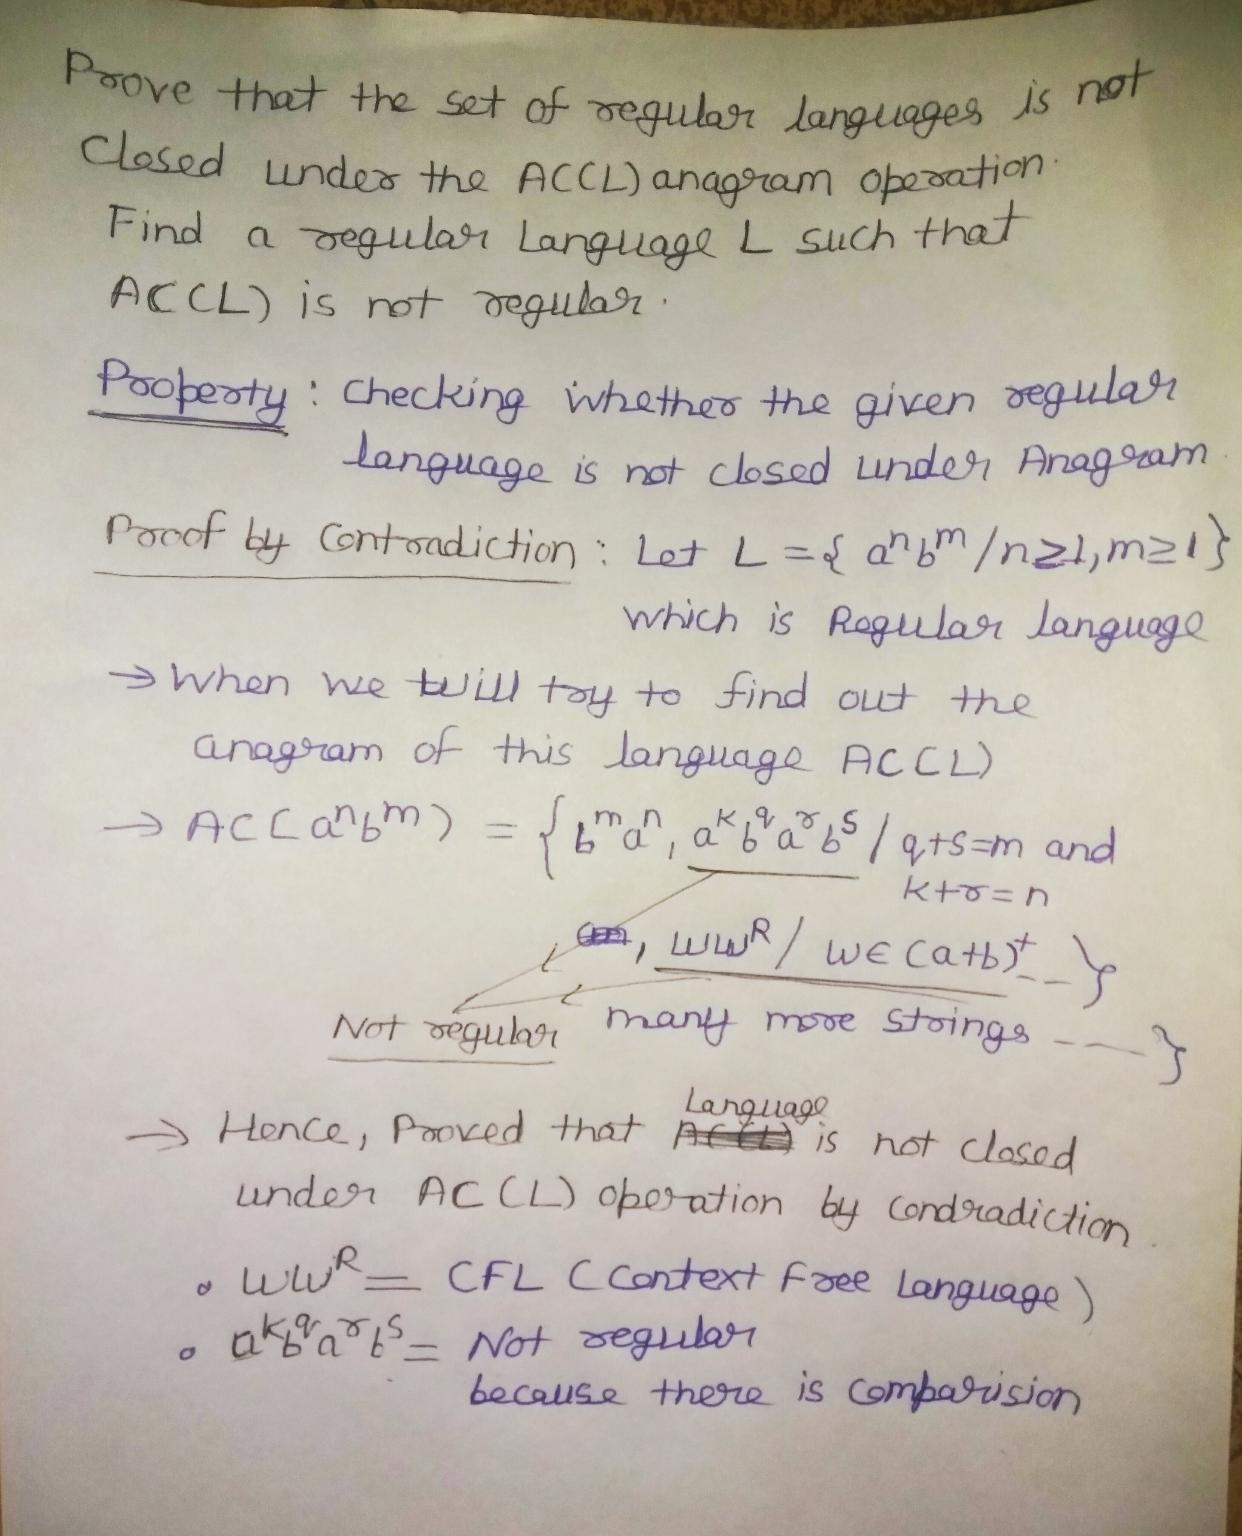 Prove that the set of regular languages is not
Closed under the AC(L) anagram operation.
Find a regular Language L such that
AC(L) is not regular.
Property : Checking whether the given regular
language is not closed under Anagram.
Proof by Contradiction : Let L = { aⁿbᵐ / n≥1, m≥1 }
which is Regular language
→ When we will try to find out the
anagram of this language AC(L)
→ AC(aⁿbᵐ) = { bᵐaⁿ, aᵏb^q aʳbˢ / q+s=m and
k+r=n
, WWᴿ / W∈(a+b)⁺ -- }
Not regular many more strings ---- }
Language
→ Hence, Proved that is not closed
under AC(L) operation by Condradiction.
• WWᴿ = CFL (Context Free Language)
• aᵏb^q aʳbˢ = Not regular
because there is comparision